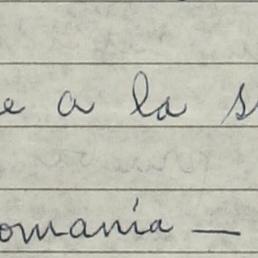 e a la s
omanía —